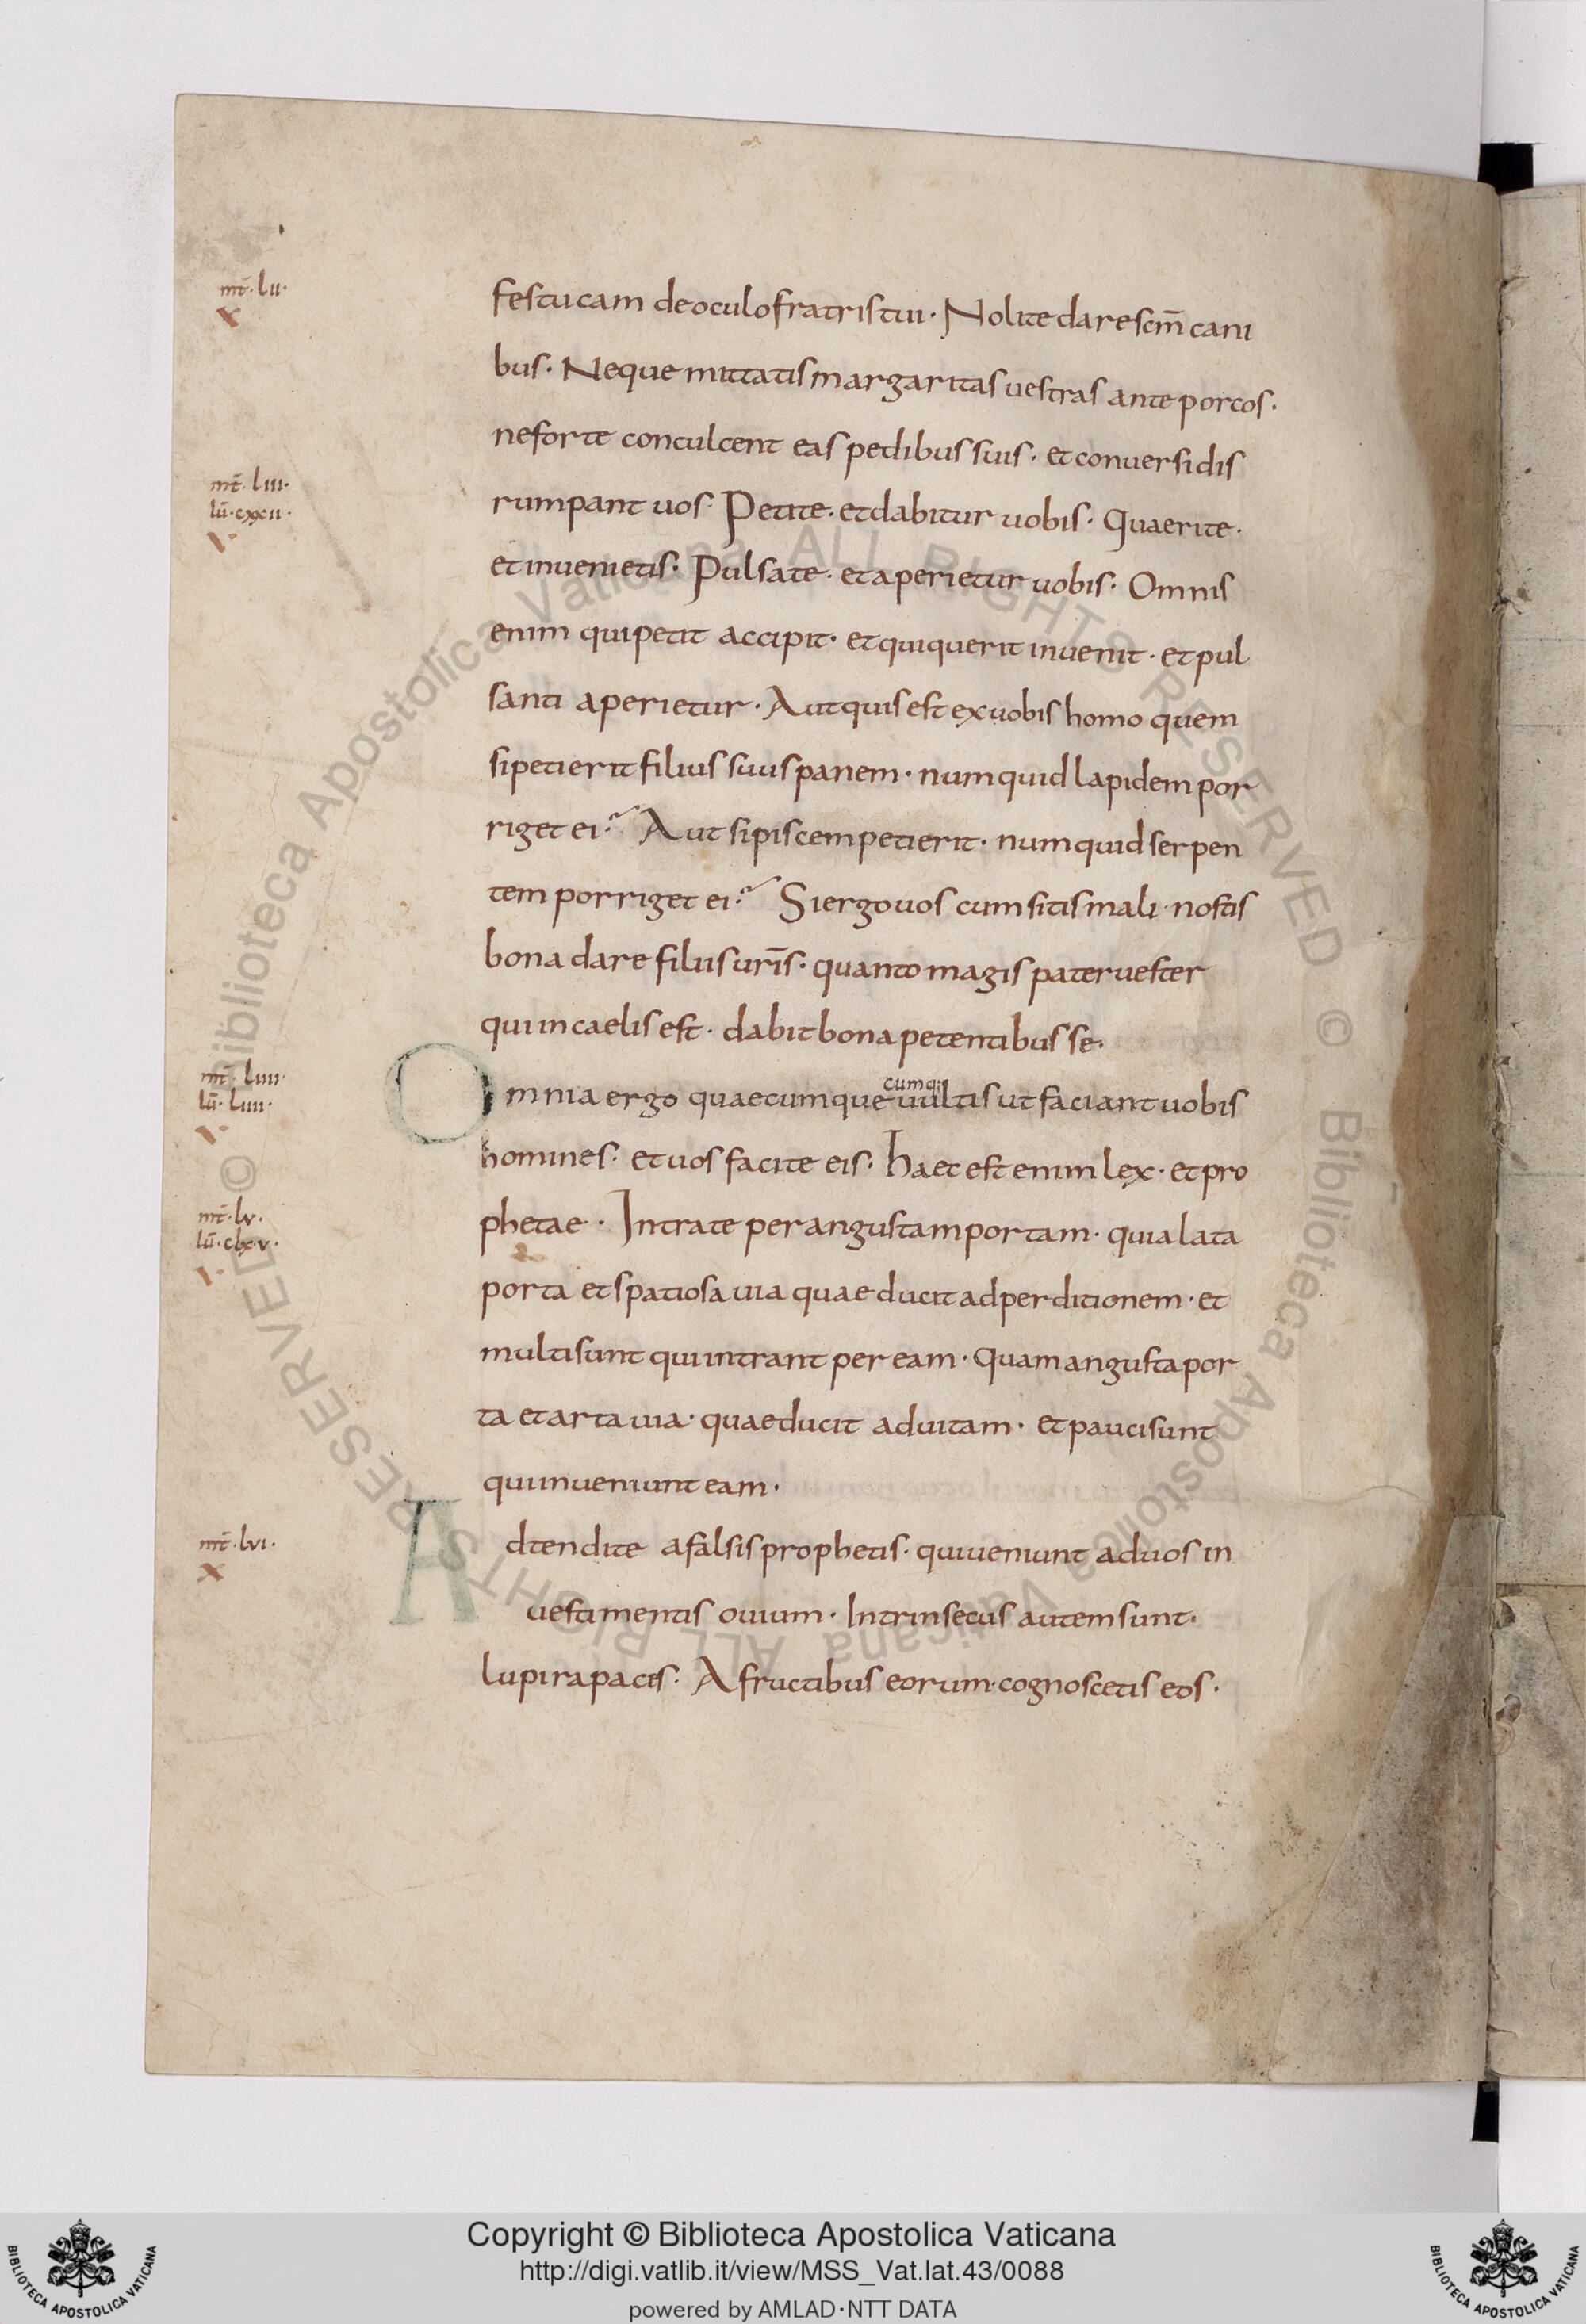 mt̄ · lii ·
x
festucam de oculo fratris tui · Nolite dare scm̄ cani
bus · Neque mittatis margaritas uestras ante porcos ·
ne forte conculcent eas pedibus suis · et conuersi dis
mt̄ · liii ·
lū · cxxii ·
i ·
rumpant uos · Petite · et dabitur uobis · Quaerite ·
et inuenietis · Pulsate · et aperietur uobis · Omnis
enim qui petit accipit · et qui querit inuenit · et pul
santi aperietur · Aut quis est ex uobis homo quem
si petierit filius suus panem · numquid lapidem por
riget ei ? Aut si piscem petierit · numquid serpen
tem porriget ei ? Si ergo uos cum sitis mali · nostis
bona dare filiis uris̄ · quanto magis pater uester
qui in caelis est · dabit bona petentibus se ·
mt̄ · liiii ·
lū · liiii ·
i ·
cumq:
Omnia ergo quaecumque uultis ut faciant uobis
homines · et uos facite eis · Haec est enim lex · et pro
mt̄ · lv ·
lū · clxv ·
i ·
phetae · Intrate per angustam portam · quia lata
porta et spatiosa uia quae ducit ad perditionem · et
multi sunt qui intrant per eam · Quam angusta por
ta et arta uia · quae ducit ad uitam · et pauci sunt
qui inueniunt eam ·
mt̄ · lvi ·
x
Adtendite a falsis prophetis · qui ueniunt ad uos in
uestimentis ouium · Intrinsecus autem sunt ·
lupi rapaces · A fructibus eorum · cognoscetis eos ·
© Biblioteca Apostolica Vaticana ALL RIGHTS RESERVED © Biblioteca Apostolica Vaticana ALL RIGHTS RESERVED
Copyright © Biblioteca Apostolica Vaticana
http://digi.vatlib.it/view/MSS_Vat.lat.43/0088
powered by AMLAD·NTT DATA
BIBLIOTECA APOSTOLICA VATICANA
BIBLIOTECA APOSTOLICA VATICANA